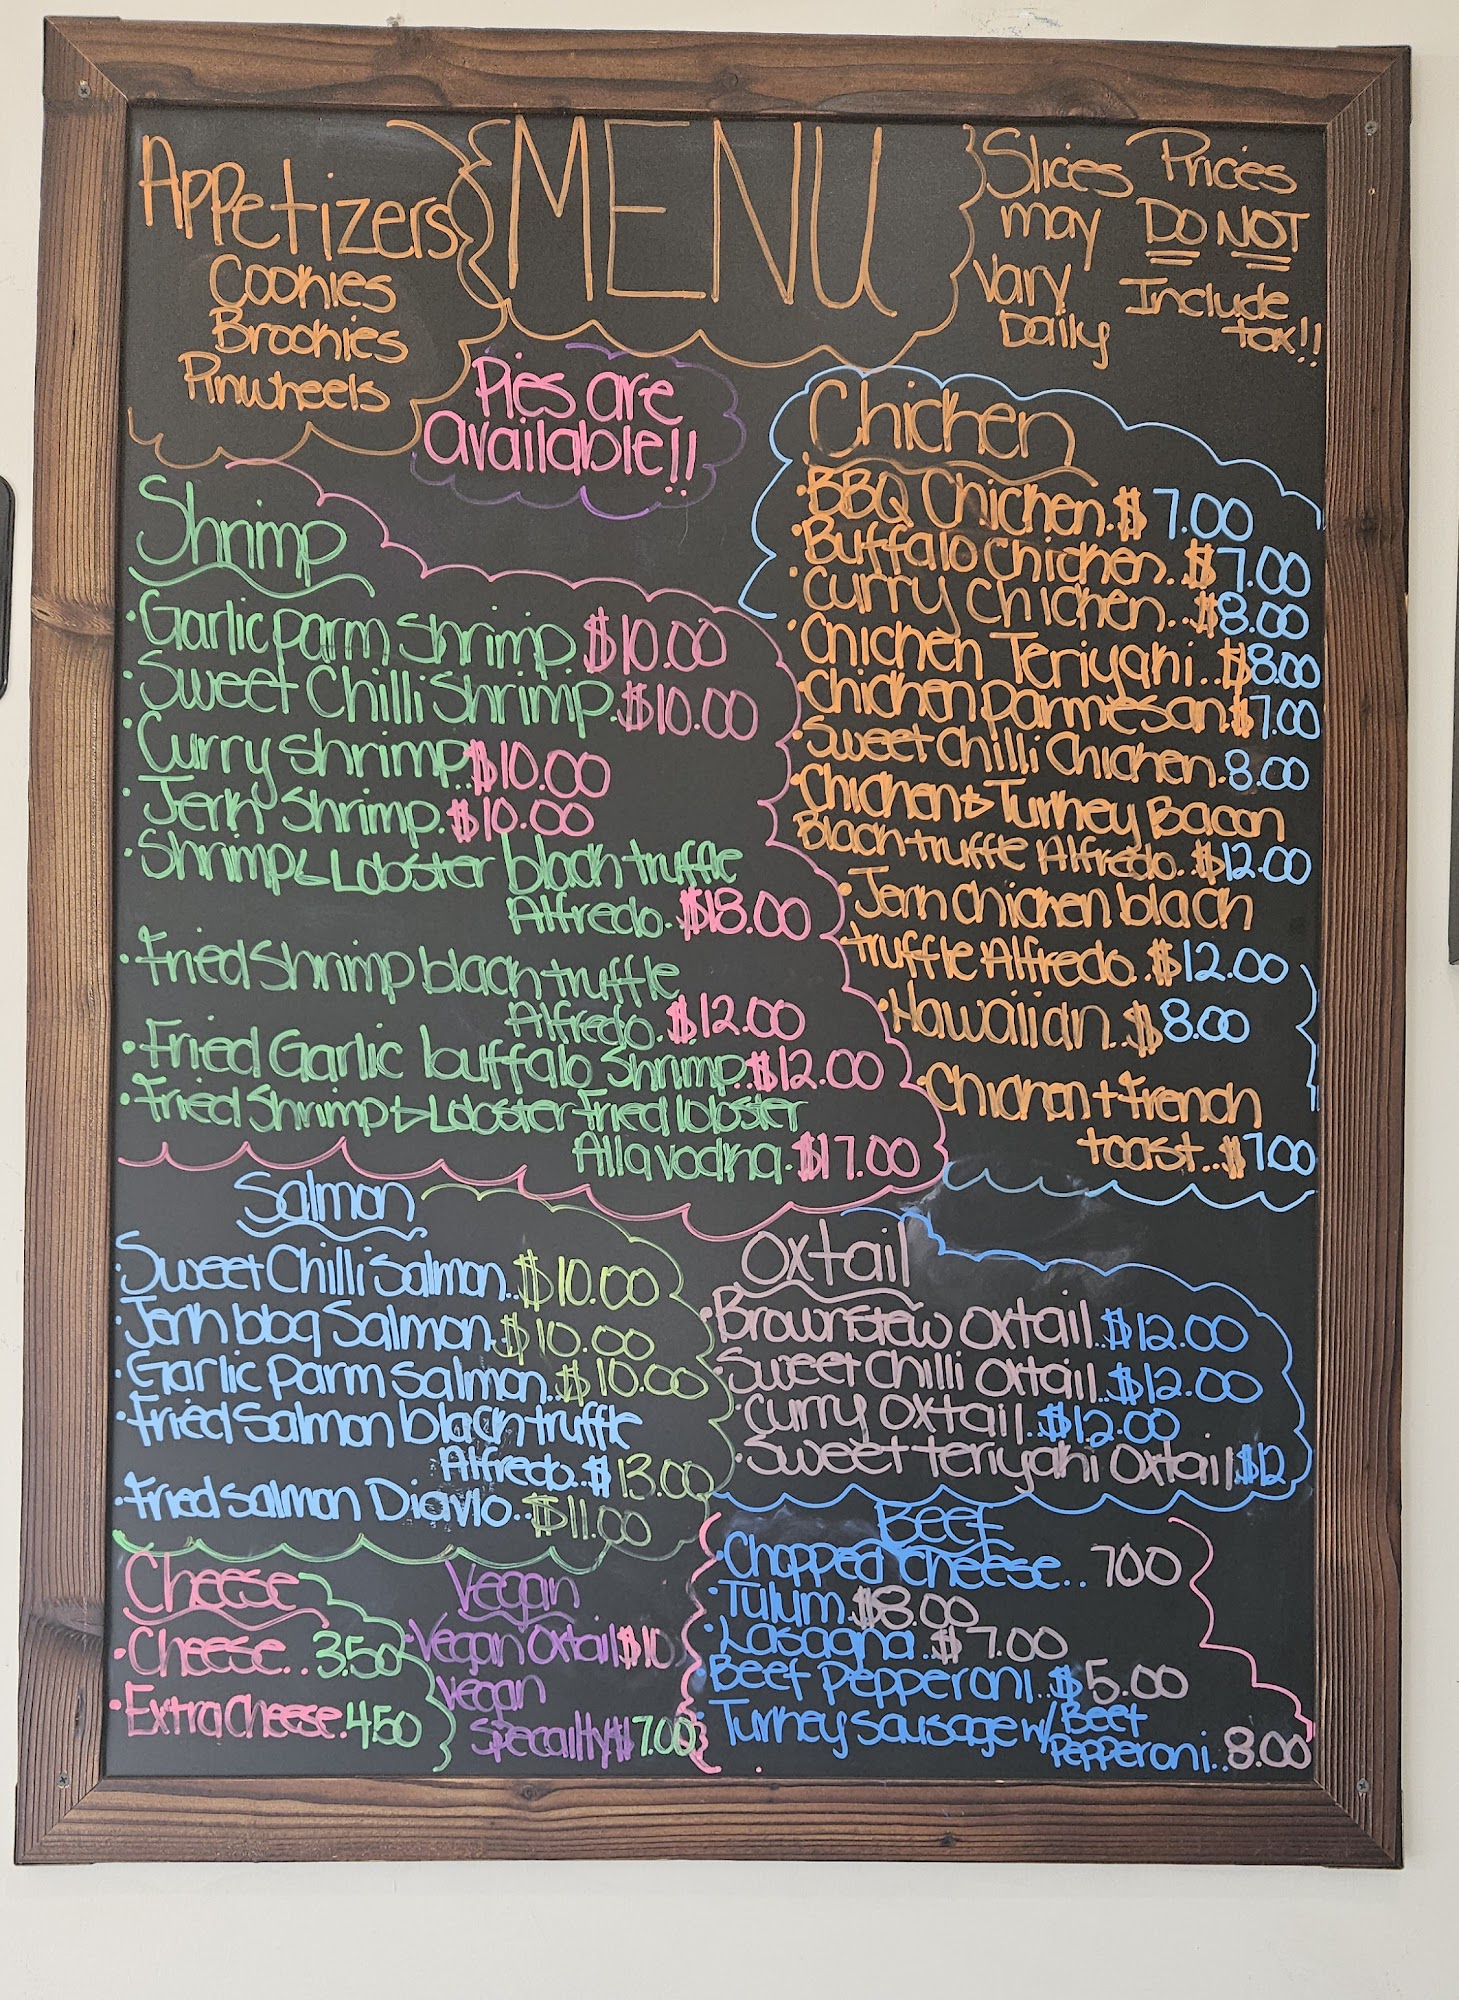 MENU
Appetizers
Cookies
Brookies
Pinwheels
Slices
may
Vary
Daily
Prices
DO NOT
Include
tax!!
Pies are
available!!
Shrimp
• Garlic parm shrimp $10.00
• Sweet Chilli Shrimp. $10.00
• Curry shrimp.. $10.00
• Jerk Shrimp. $10.00
• Shrimp & Lobster black truffle
Alfredo. $18.00
• Fried Shrimp black truffle
Alfredo. $12.00
• Fried Garlic buffalo Shrimp.. $12.00
• Fried Shrimp & Lobster Fried lobster
Allavodka. $17.00
Chicken
• BBQ Chicken. $7.00
• Buffalo Chicken.. $7.00
• Curry Chicken... $8.00
• Chicken Teriyaki.. $8.00
• Chicken parmesan $7.00
• Sweet Chilli Chicken. 8.00
• Chicken & Turkey Bacon
Black truffle Alfredo.. $12.00
• Jerk Chicken black
truffle Alfredo.. $12.00
• Hawaiian.. $8.00
• Chicken + french
toast.. $7.00
Salmon
• Sweet Chilli Salmon.. $10.00
• Jerk bbq Salmon.. $10.00
• Garlic Parm Salmon.. $10.00
• Fried Salmon black truffle
Alfredo.. $13.00
• Fried salmon Diavlo.. $11.00
Oxtail
• Brownstew oxtail.. $12.00
• Sweet Chilli Oxtail.. $12.00
• Curry oxtail.. $12.00
• Sweet teriyaki Oxtail $12
Cheese
• Cheese.. 3.50
• Extra Cheese. 4.50
Vegan
• Vegan Oxtail $10
• Vegan
Specailty $7.00
Beef
• Chopped Cheese.. 7.00
• Tulum $8.00
• Lasagna.. $7.00
• Beef Pepperoni.. $5.00
• Turkey sausage w/ Beef
Pepperoni.. 8.00